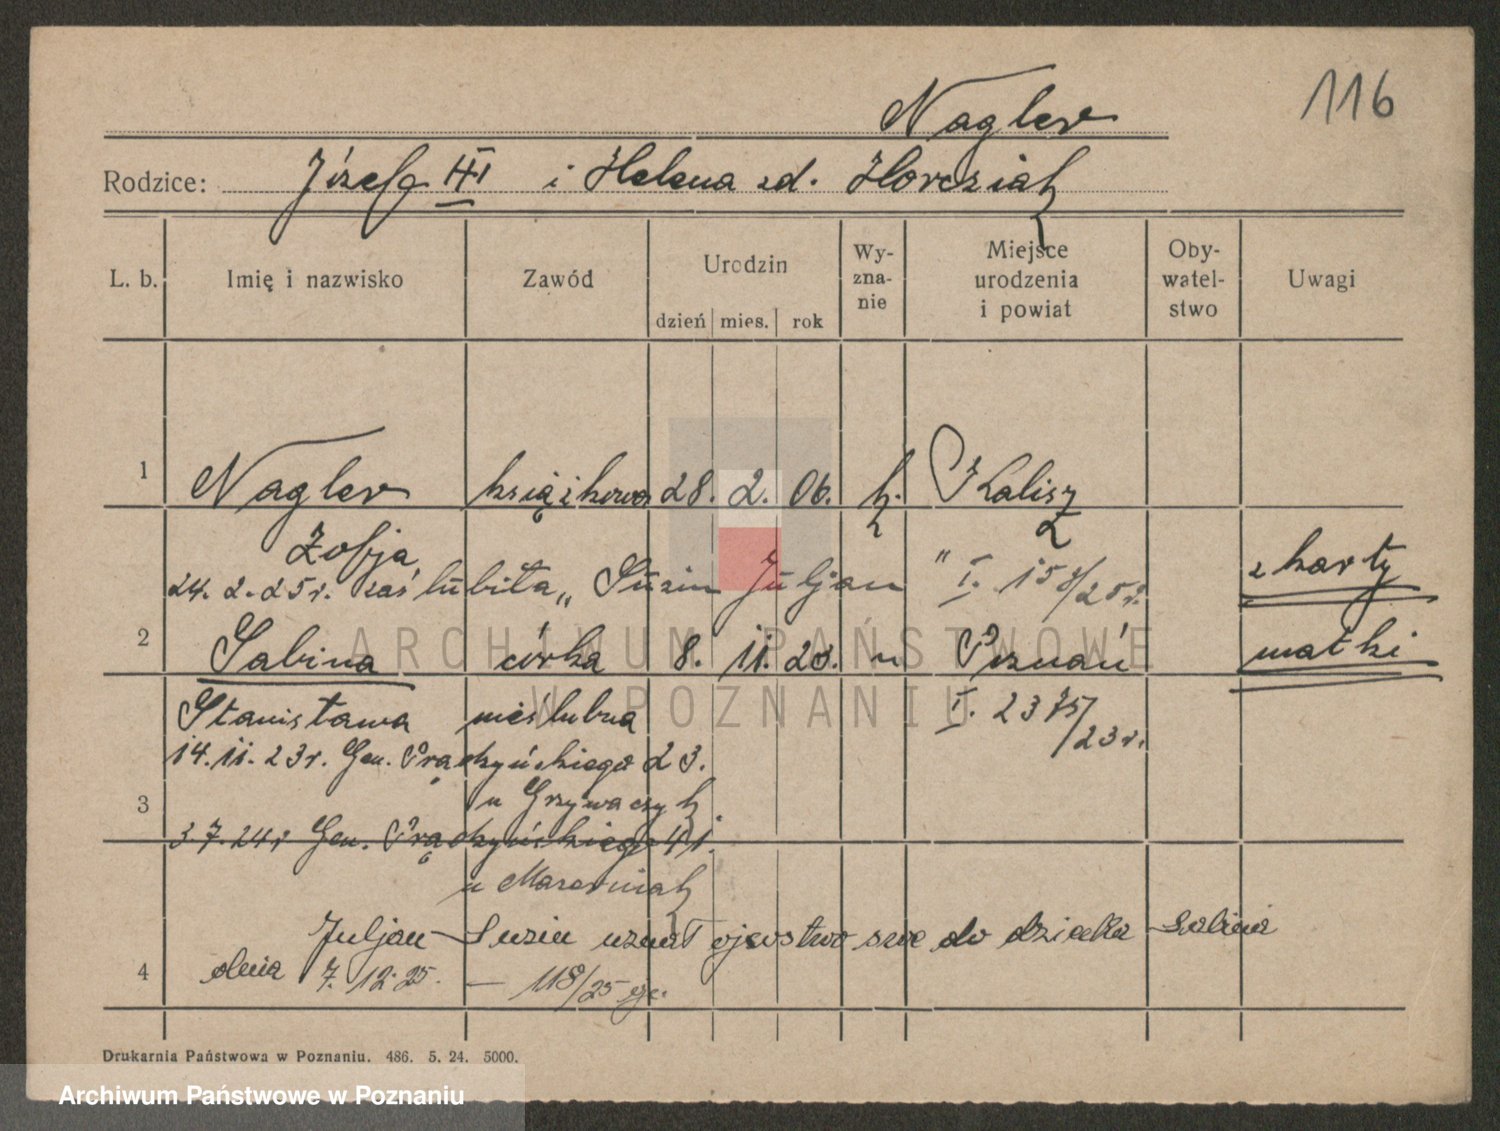 116
Nagler
Rodzice: Józef III i Helena zd. Horcziak
L. b. Imię i nazwisko Zawód Urodzin dzień mies. rok Wy-zna-nie Miejsce urodzenia i powiat Oby-watel-stwo Uwagi
1 Nagler książkowa 28. 2. 06. k. Kalisz
Zofja
24. 2. 25r. zaślubiła „ Suzin Juljan " I. 158/25r. z karty
2 Sabina córka 8. 11. 23. " Poznań matki
Stanisława nieślubna I. 2375/23r.
14. 11. 23r. Gen. Prądzyńskiego 23.
u Grzywaczyk
3
3. 7. 24r. Gen. Prądzyńskiego 41.
u Marerniak
Juljan Suzin uznał ojcostwo swe do dziecka Sabina
4 dnia 7. 12. 25. — 118/25
Drukarnia Państwowa w Poznaniu. 486. 5. 24. 5000.
ARCHIWUM PAŃSTWOWE
W POZNANIU
Archiwum Państwowe w Poznaniu